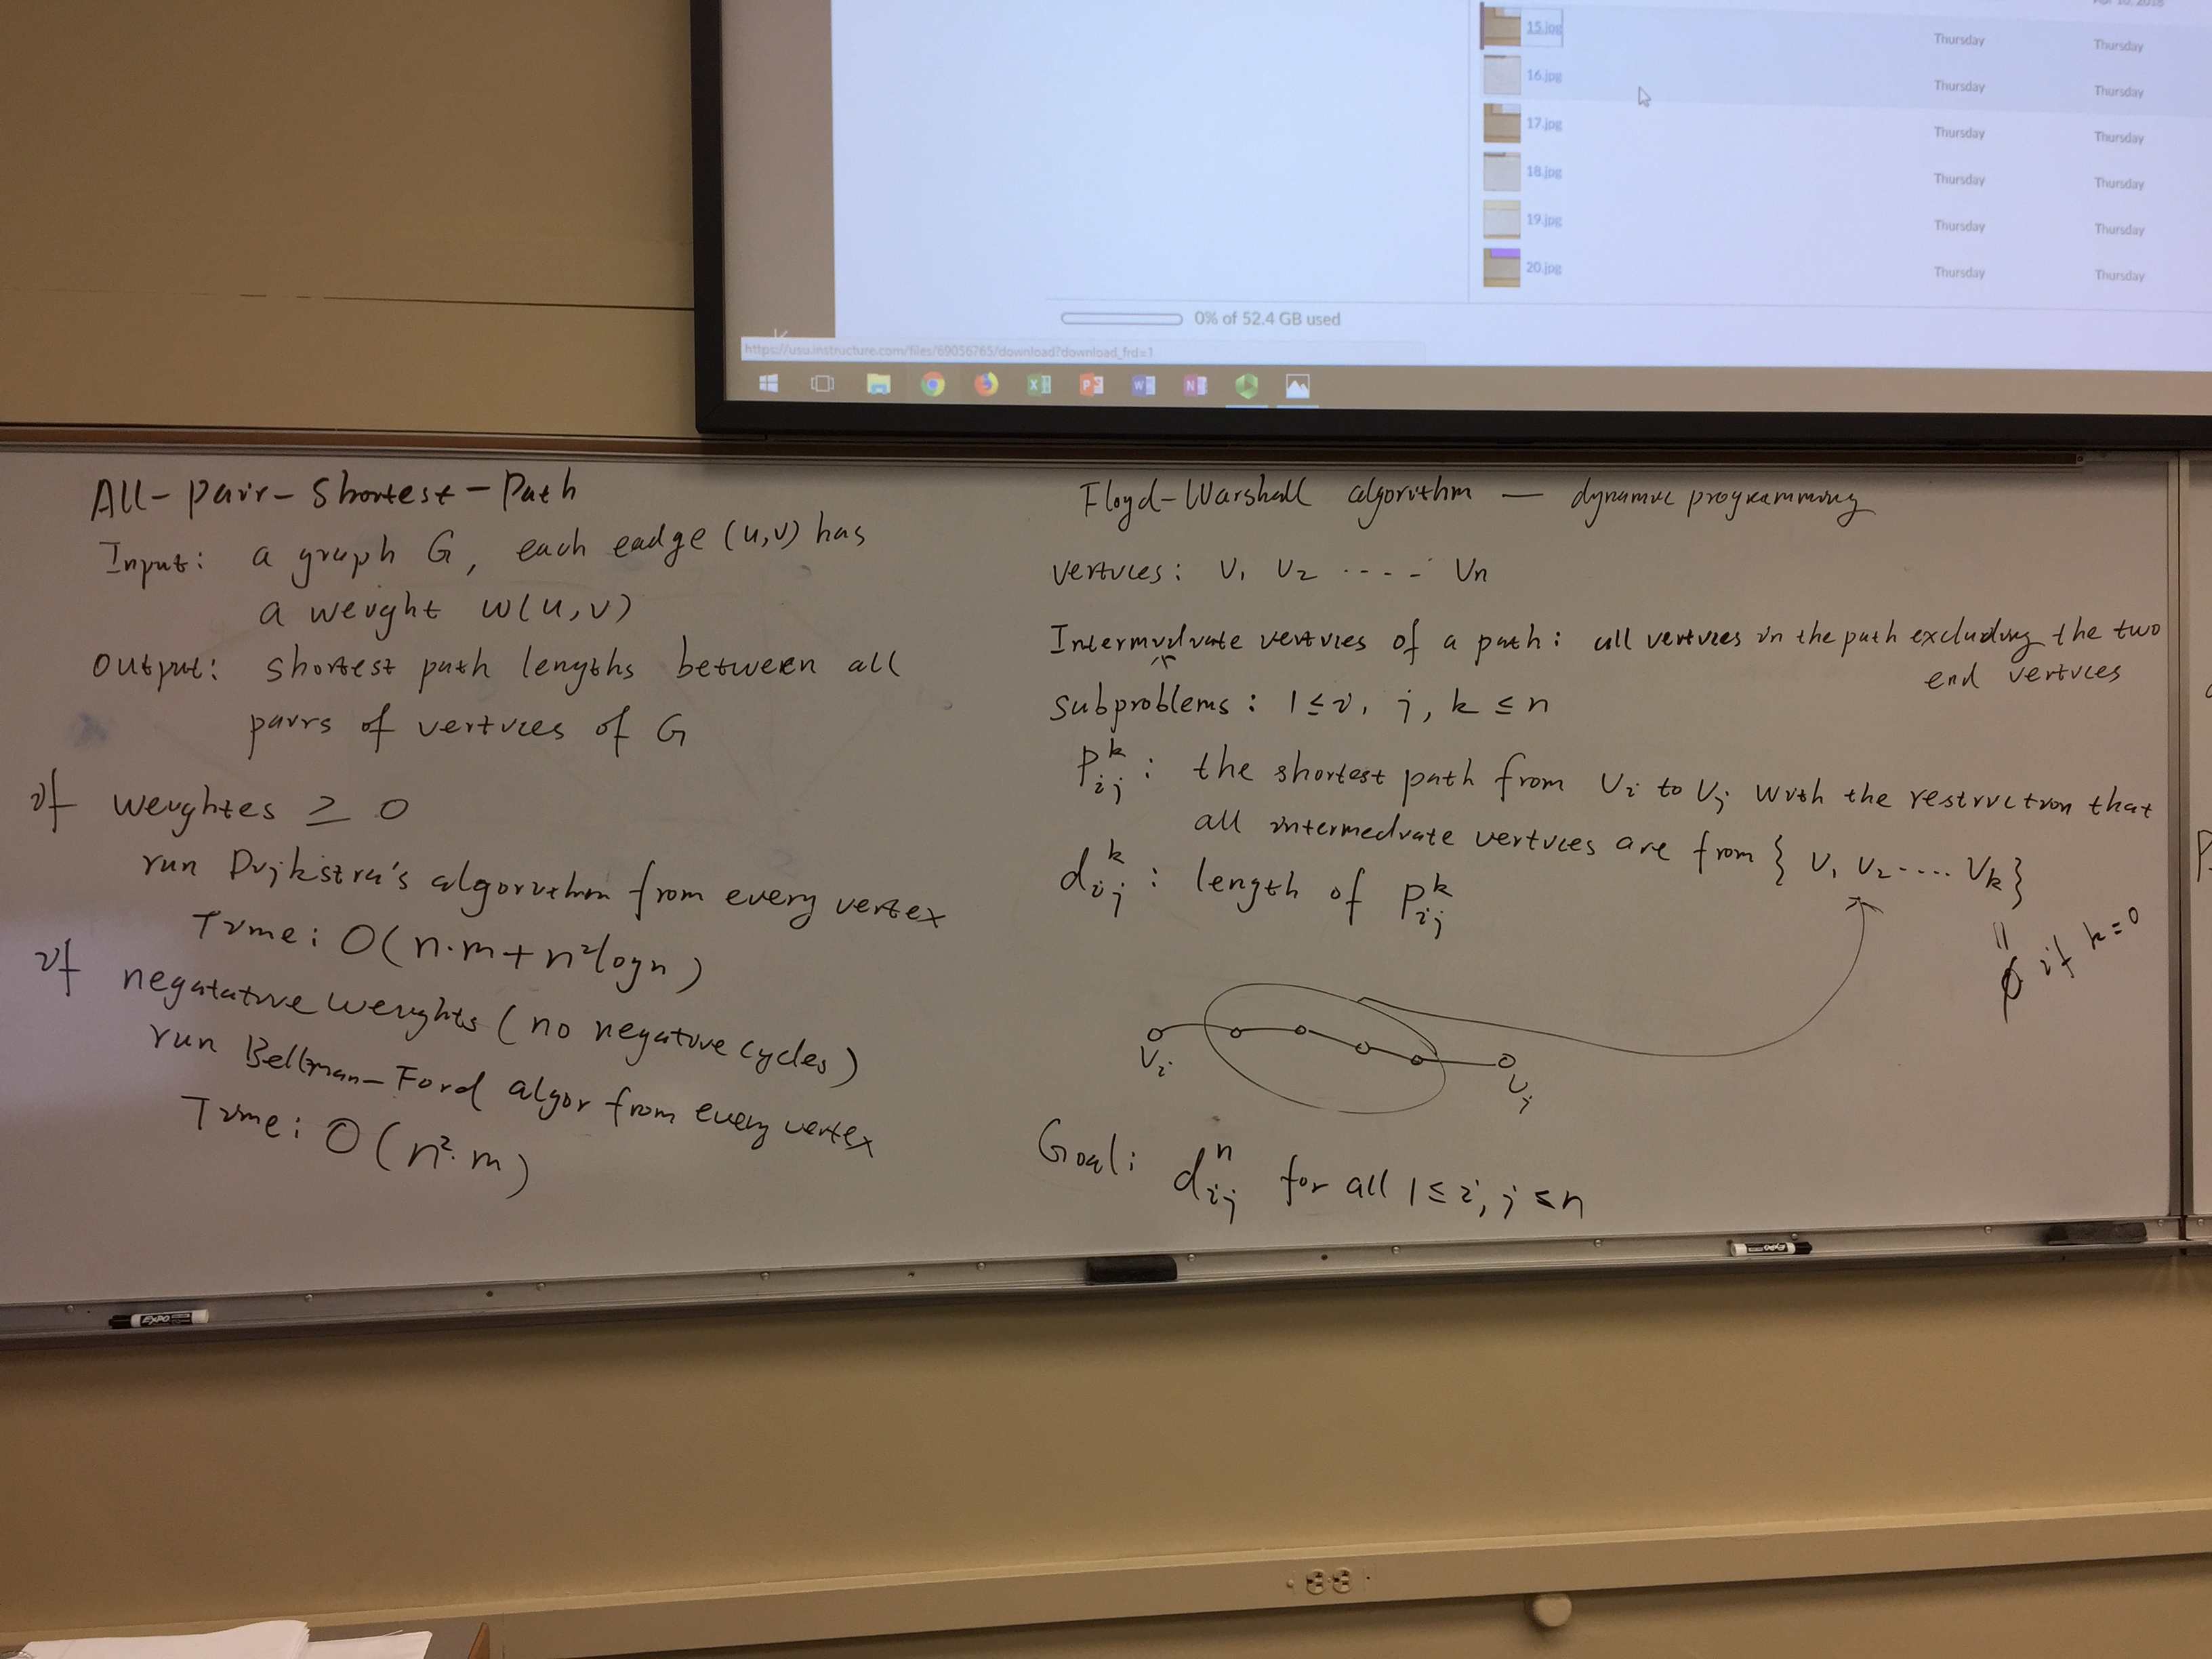 15.jpg Thursday Thursday
16.jpg Thursday Thursday
17.jpg Thursday Thursday
18.jpg Thursday Thursday
19.jpg Thursday Thursday
20.jpg Thursday Thursday
0% of 52.4 GB used
https://usu.instructure.com/files/69056765/download?download_frd=1
All-pair-Shortest-Path
Input: a graph G, each eadge (u,v) has
a weight w(u,v)
Output: shortest path lengths between all
pairs of vertices of G
if weightes ≥ 0
run Dijkstra's algorithm from every vertex
Time: O(n·m+n²logn)
if negatative weights (no negative cycles)
run Bellman-Ford algor from every vertex
Time: O(n²·m)
Floyd-Warshall algorithm — dynamic programming
vertices: v₁ v₂ ----- vn
Intermediate vertices of a path: all vertices in the path excluding the two
end vertices
subproblems: 1≤i, j, k≤n
P_ij^k: the shortest path from vi to vj with the restriction that
all intermediate vertices are from {v₁ v₂ ---- vk}
= ∅ if k=0
d_ij^k: length of P_ij^k
vi
vj
Goal: d_ij^n for all 1≤i, j≤n
EXPO
EXPO